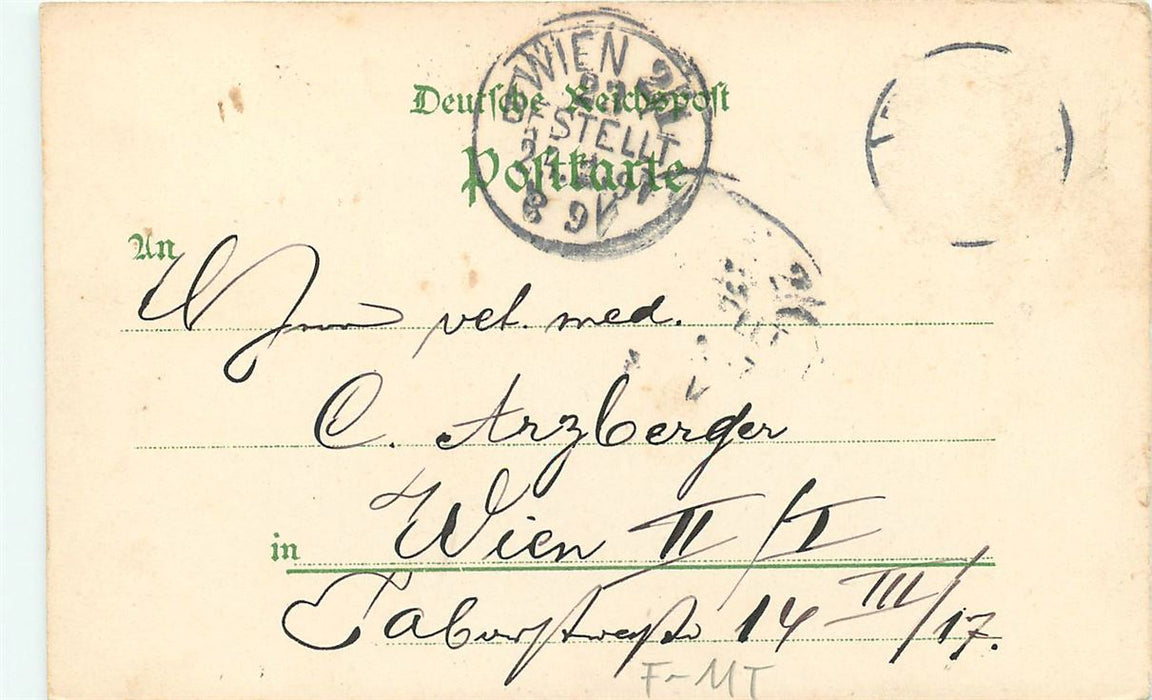 Deutsche Reichspost
WIEN 2/1
BESTELLT
Postkarte
An
vet. med.
C. Arzberger
in Wien II/I
Taborstrasse 14 III/17.
F-MT